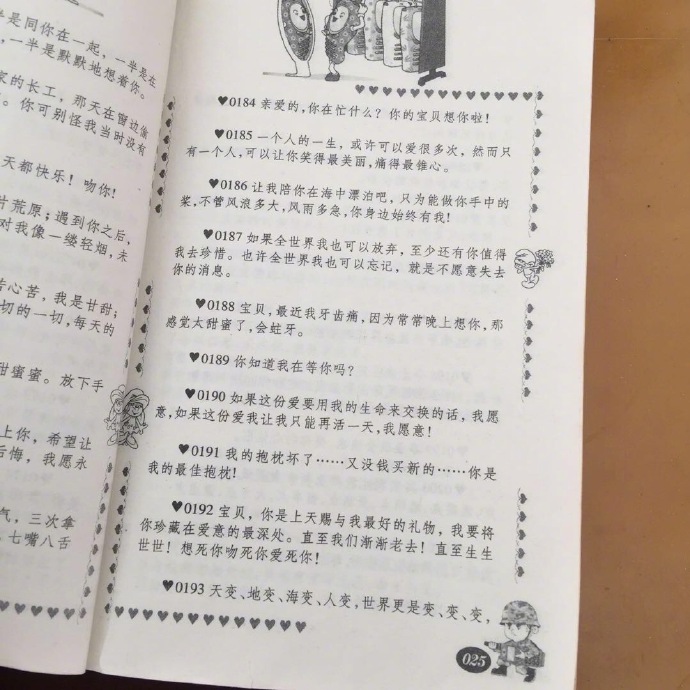 是同你在一起，一半是在
一半是默默地想着你。
家的长工，那天在窗边偷
你可别怪我当时没有
天都快乐！吻你！
片荒原；遇到你之后，
对我像一缕轻烟，未
苦心苦，我是甘甜；
切的一切，每天的
甜蜜蜜。放下手
上你，希望让
后悔，我愿永
气，三次拿
七嘴八舌
♥0184 亲爱的，你在忙什么？你的宝贝想你啦！
♥0185 一个人的一生，或许可以爱很多次，然而只
有一个人，可以让你笑得最美丽，痛得最锥心。
♥0186 让我陪你在海中漂泊吧，只为能做你手中的
桨，不管风浪多大，风雨多急，你身边始终有我！
♥0187 如果全世界我也可以放弃，至少还有你值得
我去珍惜。也许全世界我也可以忘记，就是不愿意失去
你的消息。
♥0188 宝贝，最近我牙齿痛，因为常常晚上想你，那
感觉太甜蜜了，会蛀牙。
♥0189 你知道我在等你吗？
♥0190 如果这份爱要用我的生命来交换的话，我愿
意，如果这份爱我让我只能再活一天，我愿意！
♥0191 我的抱枕坏了……又没钱买新的……你是
我的最佳抱枕！
♥0192 宝贝，你是上天赐与我最好的礼物，我要将
你珍藏在爱意的最深处。直至我们渐渐老去！直至生生
世世！想死你吻死你爱死你！
♥0193 天变、地变、海变、人变，世界更是变、变、变，
025